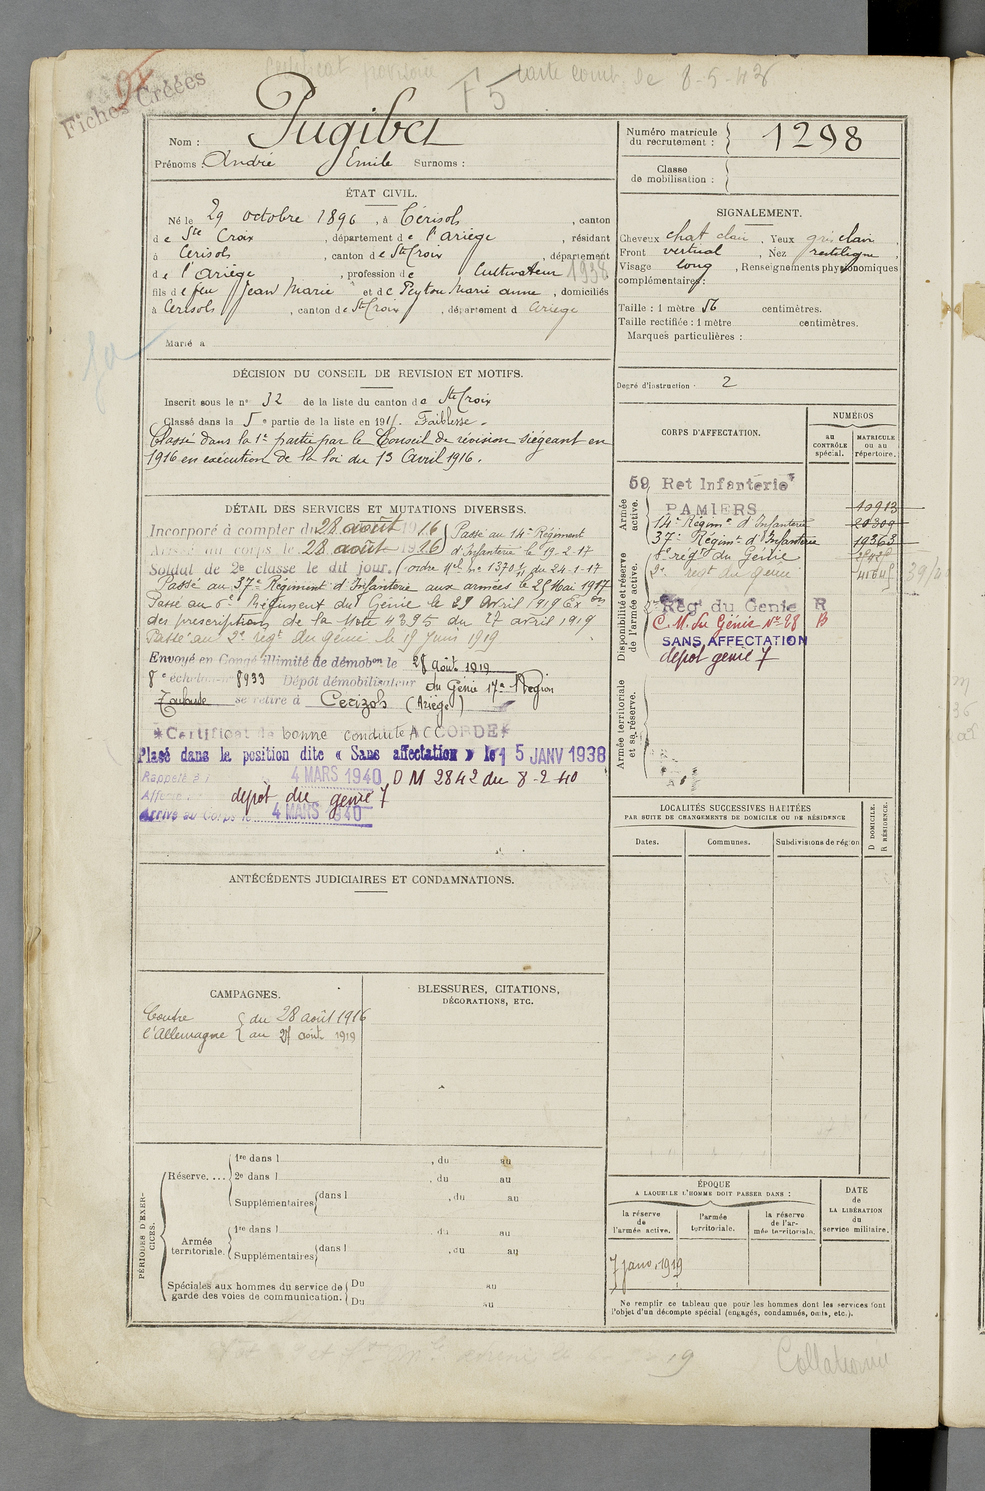 Fiches Créées
Certificat provisoire carte comb. de 8-5-43
F5
Nom : Pugibet
Prénoms : André Emile Surnoms :
Numéro matricule du recrutement : 1298
Classe de mobilisation :
ÉTAT CIVIL.
Né le 29 octobre 1896, à Cérisols, canton
de Ste Croix, département de l'Ariège, résidant
à Cérisols, canton de Ste Croix, département
de l'Ariège, profession de Cultivateur 1938
fils de feu Jean Marie et de Peytou Marie anne, domiciliés
à Cerisols, canton de Ste Croix, département d Ariège
Marié à
SIGNALEMENT.
Cheveux chat clair, Yeux gris clair
Front vertical, Nez rectiligne,
Visage long, Renseignements physionomiques
complémentaires :
Taille : 1 mètre 56 centimètres.
Taille rectifiée : 1 mètre centimètres.
Marques particulières :
Degré d'instruction : 2
DÉCISION DU CONSEIL DE REVISION ET MOTIFS.
Inscrit sous le n° 32 de la liste du canton de Ste Croix
Classé dans la 5e partie de la liste en 191 . Faiblesse.
Classé dans la 1re partie par le Conseil de révision siégeant en
1916 en exécution de la loi du 13 Avril 1916.
DÉTAIL DES SERVICES ET MUTATIONS DIVERSES.
Incorporé à compter du 28 août 1916 Passé au 14e Régiment
Arrivé au corps le 28 août 1916 d'Infanterie le 19-2-17
Soldat de 2e classe le dit jour. (ordre Mel no 1370 du 24-1-17
Passé au 37e Régiment d'Infanterie aux armées le 25 Mai 1917
Passé au 6e Régiment du Génie le 29 Avril 1919 Exon
des prescriptions de la Note 4395 du 27 avril 1919
Passé au 2e regt du génie le 19 Juin 1919
Envoyé en Congé illimité de démobon le 28 août 1919
8e échelon no 8933 Dépôt démobilisateur du Génie 17e Région
Toulouse se retire à Cerizols (Ariège)
Certificat de bonne conduite ACCORDÉ
Plasé dans la position dite « Sans affectation » le 15 JANV 1938
Rappelé à l 4 MARS 1940 D M 2842 du 8-2-40
Affecté depot du genie 7
Arrivé au Corps le 4 MARS 1940
CORPS D'AFFECTATION.
NUMÉROS
au CONTRÔLE spécial.
MATRICULE ou au répertoire.
Armée active.
59 Ret Infanterie
PAMIERS 10913
14e Régimt d'Infanterie 20309
37e Régimt d'Infanterie 19363
6e régt du Génie
2e regt du génie
Disponibilité et réserve de l'armée active.
2e Reg du Genie R
C. M. du Génie No 28 B
SANS AFFECTATION
depot genie 7
Armée territoriale et sa réserve.
LOCALITÉS SUCCESSIVES HABITÉES
PAR SUITE DE CHANGEMENTS DE DOMICILE OU DE RÉSIDENCE
Dates. Communes. Subdivisions de région
D DOMICILE. R RÉSIDENCE.
ANTÉCÉDENTS JUDICIAIRES ET CONDAMNATIONS.
CAMPAGNES.
Contre du 28 août 1916
l'Allemagne au 27 août 1919
BLESSURES, CITATIONS,
DÉCORATIONS, ETC.
PÉRIODES D'EXERCICES.
Réserve.... 1re dans l , du au
2e dans l , du au
Supplémentaires dans l , du au
Armée territoriale. 1re dans l , du au
Supplémentaires dans l , du au
Spéciales aux hommes du service de garde des voies de communication. Du au
Du au
ÉPOQUE
A LAQUELLE L'HOMME DOIT PASSER DANS :
la réserve de l'armée active.
l'armée territoriale.
la réserve de l'armée territoriale.
DATE de LA LIBÉRATION du service militaire.
7 janv. 1919
Ne remplir ce tableau que pour les hommes dont les services font
l'objet d'un décompte spécial (engagés, condamnés, omis, etc.).
Collationné